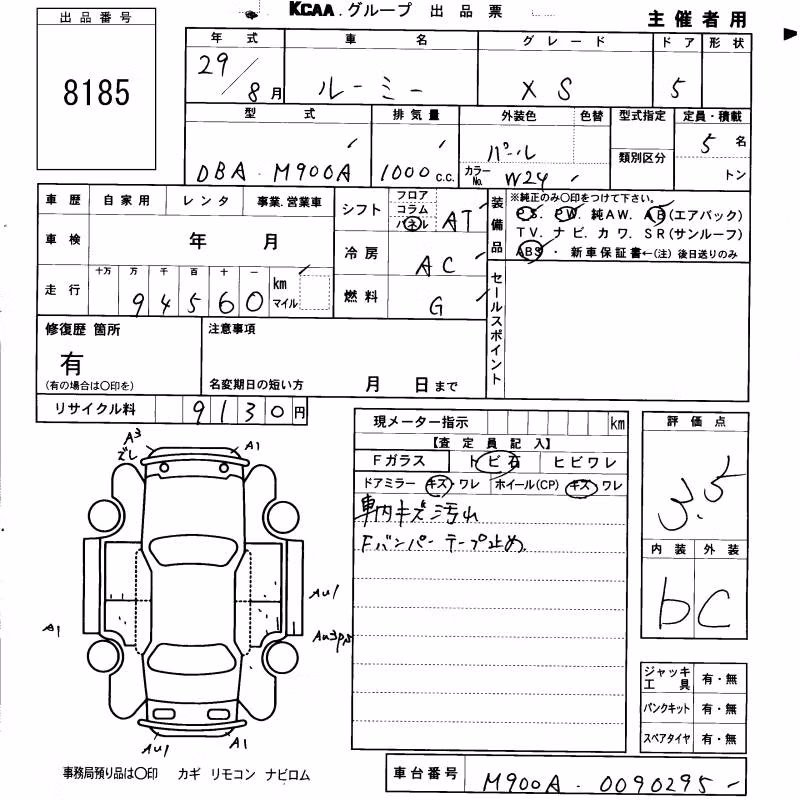 KCAA.グループ 出品票
主催者用
出品番号
8185
年式 車名 グレード ドア 形状
29/8月 ルーミー XS 5
型式 排気量 外装色 色替 型式指定 定員・積載
DBA-M900A 1000c.c. パール カラーNo. W24 類別区分 5名
トン
車歴 自家用 レンタ 事業.営業車
車検 年 月
走行 十万 万 千 百 十 一
94560 km マイル
シフト フロア コラム パネル AT
冷房 AC
燃料 G
装備品 ※純正のみ〇印をつけて下さい。
PS. PW. 純AW. AB(エアバック)
TV. ナビ. カワ. SR(サンルーフ)
ABS ・ 新車保証書←(注) 後日送りのみ
セールスポイント
修復歴 箇所
有
(有の場合は〇印を)
注意事項
名変期日の短い方 月 日まで
リサイクル料 9130円
現メーター指示 km
【査定員記入】
Fガラス トビ石 ヒビワレ
ドアミラー キズ・ワレ ホイール(CP) キズ・ワレ
車内キズ汚れ
Fバンパーテープ止め
評価点
3.5
内装 外装
b C
A3
ズレ
A1
AU1
A1
AU1
A1
ジャッキ工具 有・無
パンクキット 有・無
スペアタイヤ 有・無
事務局預り品は〇印 カギ リモコン ナビロム
車台番号 M900A-0090295